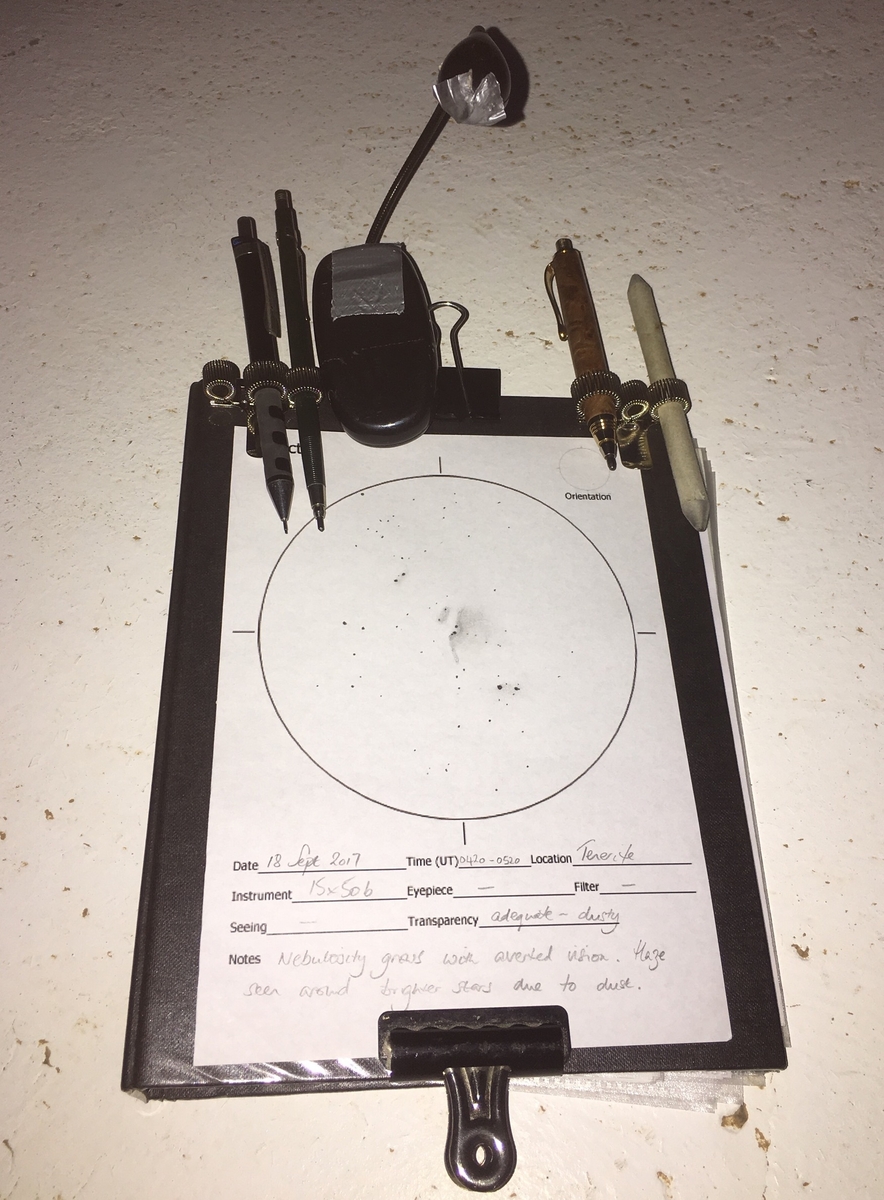 ct
Orientation
Date 18 Sept 2017 Time (UT) 0420-0520 Location Tenerife
Instrument 15x50b Eyepiece — Filter —
Seeing — Transparency adequate - dusty
Notes Nebulosity grows with averted vision. Haze
seen around brighter stars due to dust.